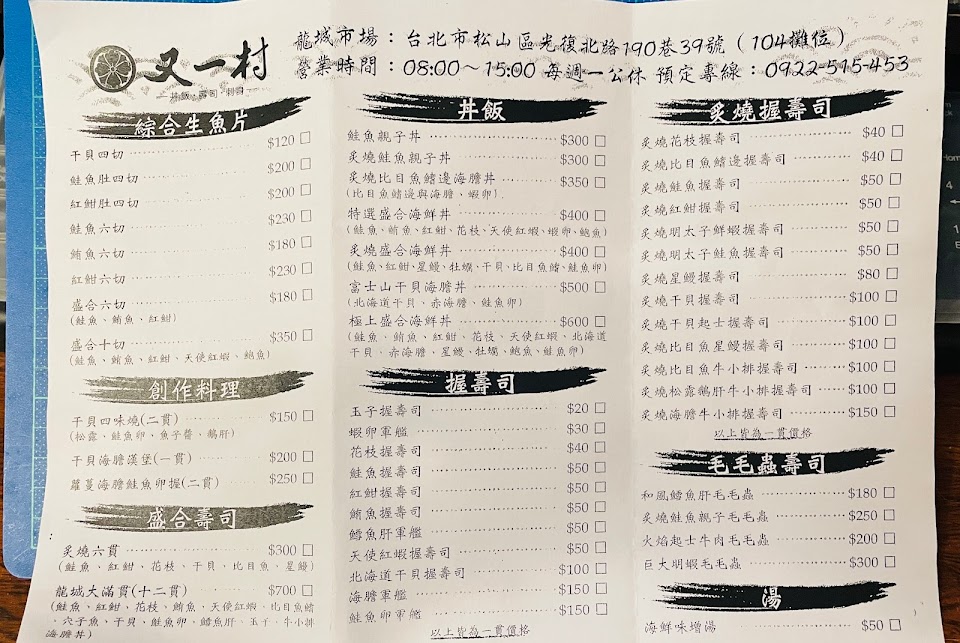 又一村
丼飯·壽司·刺身
龍城市場：台北市松山區光復北路190巷39號（104攤位）
營業時間：08:00～15:00 每週一公休 預定專線：0922-515-453
綜合生魚片
干貝四切 $120 □
鮭魚肚四切 $200 □
紅魽肚四切 $200 □
鮭魚六切 $230 □
鮪魚六切 $180 □
紅魽六切 $230 □
盛合六切 $180 □
(鮭魚、鮪魚、紅魽)
盛合十切 $350 □
(鮭魚、鮪魚、紅魽、天使紅蝦、鮑魚)
創作料理
干貝四味燒(二貫) $150 □
(松露、鮭魚卵、魚子醬、鵝肝)
干貝海膽漢堡(一貫) $200 □
蘿蔓海膽鮭魚卵握(二貫) $250 □
盛合壽司
炙燒六貫 $300 □
(鮭魚、紅魽、花枝、干貝、比目魚、星鰻)
龍城大滿貫(十二貫) $700 □
(鮭魚、紅魽、花枝、鮪魚、天使紅蝦、比目魚鰭
、穴子魚、干貝、鮭魚卵、鱈魚肝、玉子、牛小排
海膽丼)
丼飯
鮭魚親子丼 $300 □
炙燒鮭魚親子丼 $300 □
炙燒比目魚鰭邊海膽丼 $350 □
(比目魚鰭邊與海膽、蝦卵)
特選盛合海鮮丼 $400 □
(鮭魚、鮪魚、紅魽、花枝、天使紅蝦、蝦卵、鮑魚)
炙燒盛合海鮮丼 $400 □
(鮭魚、紅魽、星鰻、牡蠣、干貝、比目魚鰭、鮭魚卵)
富士山干貝海膽丼 $500 □
(北海道干貝、赤海膽、鮭魚卵)
極上盛合海鮮丼 $600 □
(鮭魚、鮪魚、紅魽、花枝、天使紅蝦、北海道
干貝、赤海膽、星鰻、牡蠣、鮑魚、鮭魚卵)
握壽司
玉子握壽司 $20 □
蝦卵軍艦 $30 □
花枝握壽司 $40 □
鮭魚握壽司 $50 □
紅魽握壽司 $50 □
鮪魚握壽司 $50 □
鱈魚肝軍艦 $50 □
天使紅蝦握壽司 $50 □
北海道干貝握壽司 $100 □
海膽軍艦 $150 □
鮭魚卵軍艦 $150 □
以上皆為一貫價格
炙燒握壽司
炙燒花枝握壽司 $40 □
炙燒比目魚鰭邊握壽司 $40 □
炙燒鮭魚握壽司 $50 □
炙燒紅魽握壽司 $50 □
炙燒明太子鮮蝦握壽司 $50 □
炙燒明太子鮭魚握壽司 $50 □
炙燒星鰻握壽司 $80 □
炙燒干貝握壽司 $100 □
炙燒干貝起士握壽司 $100 □
炙燒比目魚星鰻握壽司 $100 □
炙燒比目魚牛小排握壽司 $100 □
炙燒松露鵝肝牛小排握壽司 $100 □
炙燒海膽牛小排握壽司 $150 □
以上皆為一貫價格
毛毛蟲壽司
和風鱈魚肝毛毛蟲 $180 □
炙燒鮭魚親子毛毛蟲 $250 □
火焰起士牛肉毛毛蟲 $200 □
巨大明蝦毛毛蟲 $300 □
湯
海鮮味增湯 $50 □